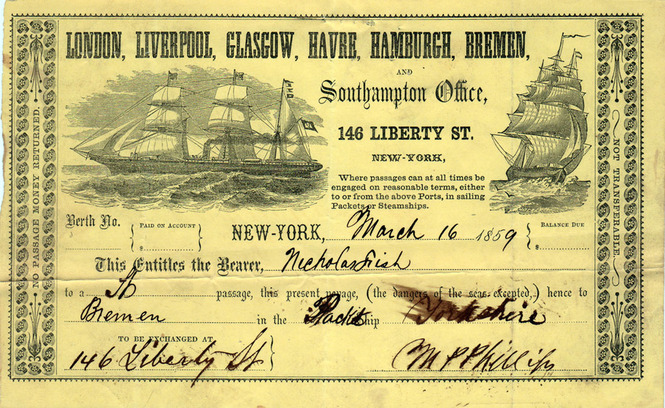 LONDON, LIVERPOOL, GLASGOW, HAVRE, HAMBURGH, BREMEN,
AND
Southampton Office,
146 LIBERTY ST.
NEW-YORK,
Where passages can at all times be
engaged on reasonable terms, either
to or from the above Ports, in sailing
Packets or Steamships.
NO PASSAGE MONEY RETURNED.
NOT TRANSFERABLE.
Berth No. PAID ON ACCOUNT $ NEW-YORK, March 16 1859 BALANCE DUE $
This Entitles the Bearer, Nicholas Fish
to a passage, this present voyage, (the dangers of the seas excepted,) hence to
Bremen in the Packet ship Yorkshire
TO BE EXCHANGED AT
146 Liberty St M P Phillips